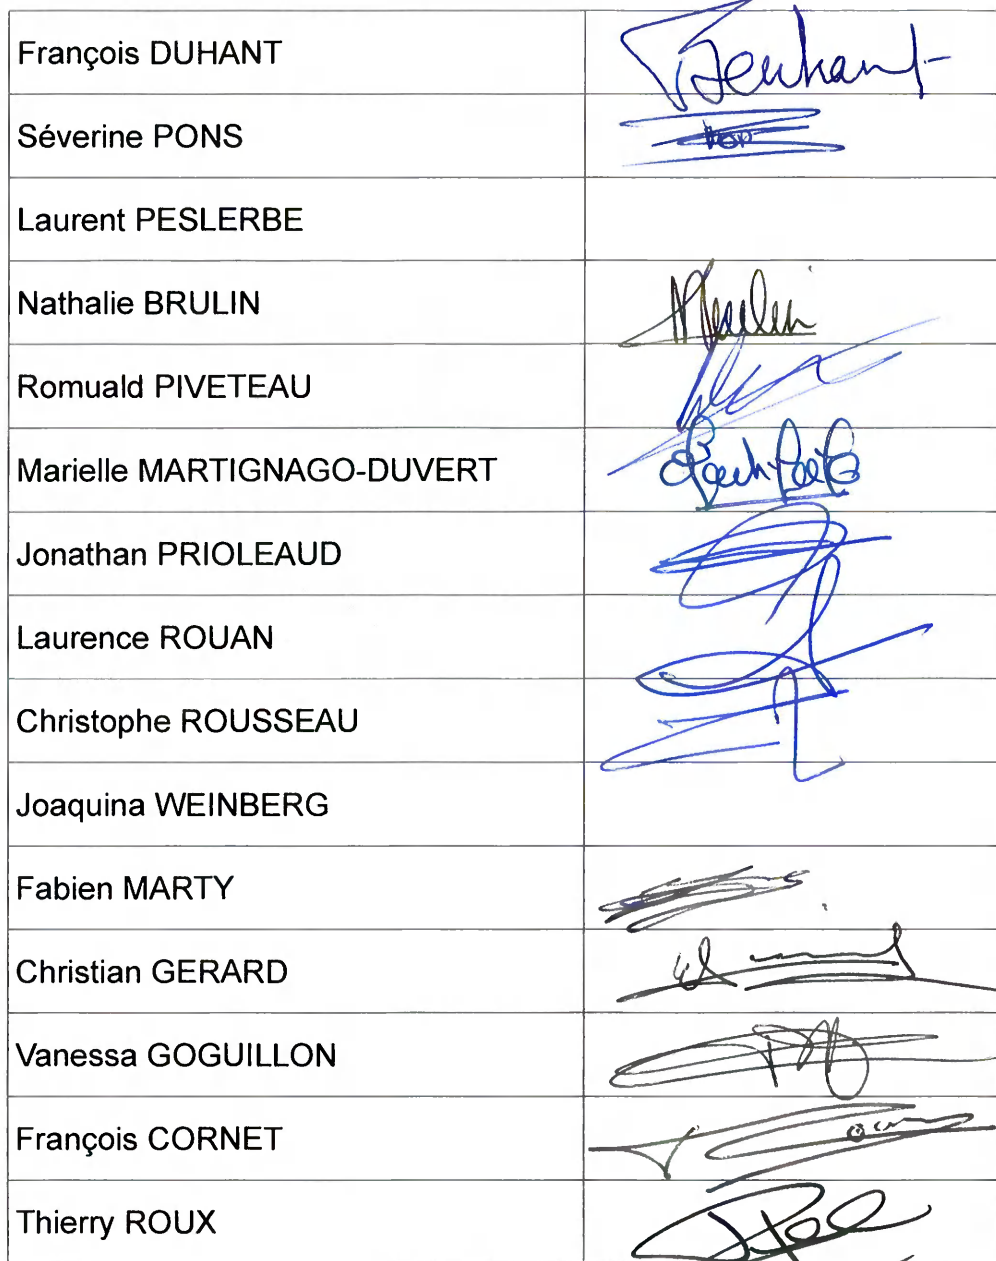 François DUHANT
Séverine PONS
Laurent PESLERBE
Nathalie BRULIN
Romuald PIVETEAU
Marielle MARTIGNAGO-DUVERT
Jonathan PRIOLEAUD
Laurence ROUAN
Christophe ROUSSEAU
Joaquina WEINBERG
Fabien MARTY
Christian GERARD
Vanessa GOGUILLON
François CORNET
Thierry ROUX